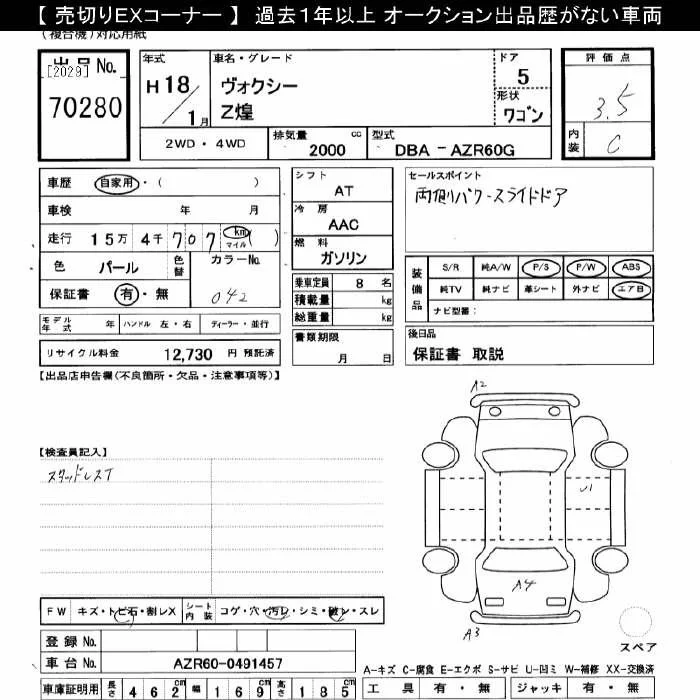 【 売切りEXコーナー 】 過去１年以上 オークション出品歴がない車両
(複合機)対応用紙
出品 No.
[2029]
70280
年式
H 18
/
1 月
車名・グレード
ヴォクシー
Z煌
ドア
5
形状
ワゴン
評価点
3.5
内装
C
2WD・4WD
排気量 cc
2000
型式
DBA － AZR60G
車歴 自家用・( )
車検 年 月
走行 15万 4千 707 km マイル ( )
色 パール 色替
カラーNo.
042
保証書 有・無
シフト
AT
冷房
AAC
燃料
ガソリン
乗車定員 8 名
積載量 kg
総重量 kg
セールスポイント
両側パワースライドドア
装備品
S/R 純A/W P/S P/W ABS
純TV 純ナビ 革シート 外ナビ エアB
ナビ型番：
モデル年式 年 ハンドル 左・右 ディーラー・並行
リサイクル料金 12,730 円 預託済
書類期限
月 日
後日品
保証書 取説
【出品店申告欄(不良箇所・欠品・注意事項等)】
【検査員記入】
スタッドレスT
A2
U1
A4
A3
スペア
FW キズ・トビ石・割レX シート内装 コゲ・穴・汚レ・シミ・破レ・スレ
登録 No.
車台 No. AZR60-0491457
車庫証明用 長さ 462cm 幅 169cm 高さ 185cm
A-キズ C-腐食 E-エクボ S-サビ U-凹ミ W-補修 XX-交換済
工具 有・無 ジャッキ 有・無